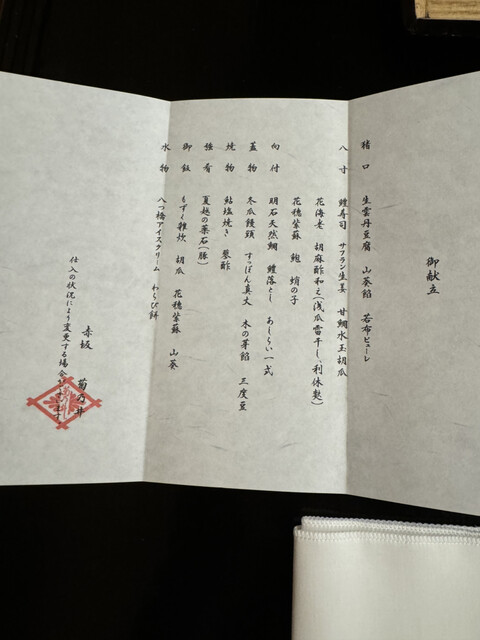 御献立
猪口 生雲丹豆腐 山葵餡 若布ピューレ
八寸 鱧寿司 サフラン生姜 甘鯛水玉胡瓜
花海老 胡麻酢和え(浅瓜雷干し、利休麩)
花穂紫蘇 鮑 蛸の子
向付 明石天然鯛 鱧落とし あしらい一式
蓋物 冬瓜饅頭 すっぽん真丈 木の芽餡 三度豆
焼物 鮎塩焼き 蓼酢
強肴 夏越の薬石(豚)
御飯 もずく雑炊 胡瓜 花穂紫蘇 山葵
水物 八つ橋アイスクリーム わらび餅
赤坂 菊乃井
仕入の状況により変更する場合がございます。